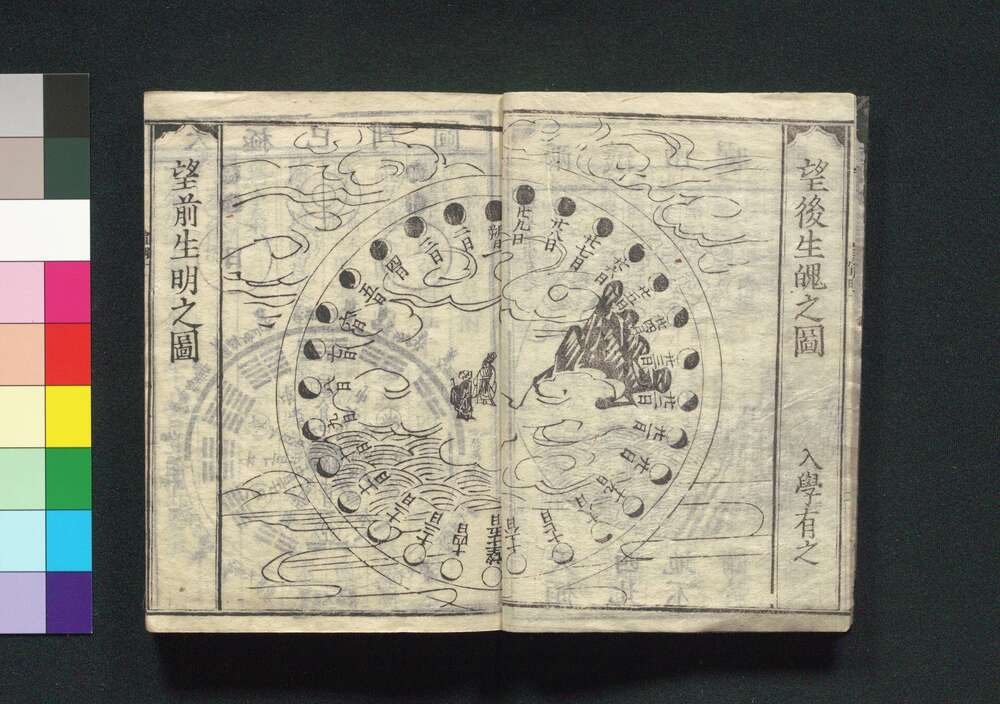 望後生魄之圖
入學有之
望前生明之圖
朔日
二日
三日
四日
五日
六日
七日
八日
九日
十日
十一日
十二日
十三日
十四日
望十五日
十六日
十七日
十九日
廿日
廿一日
廿二日
廿三日
廿四日
廿五日
廿六日
廿七日
廿八日
廿九日